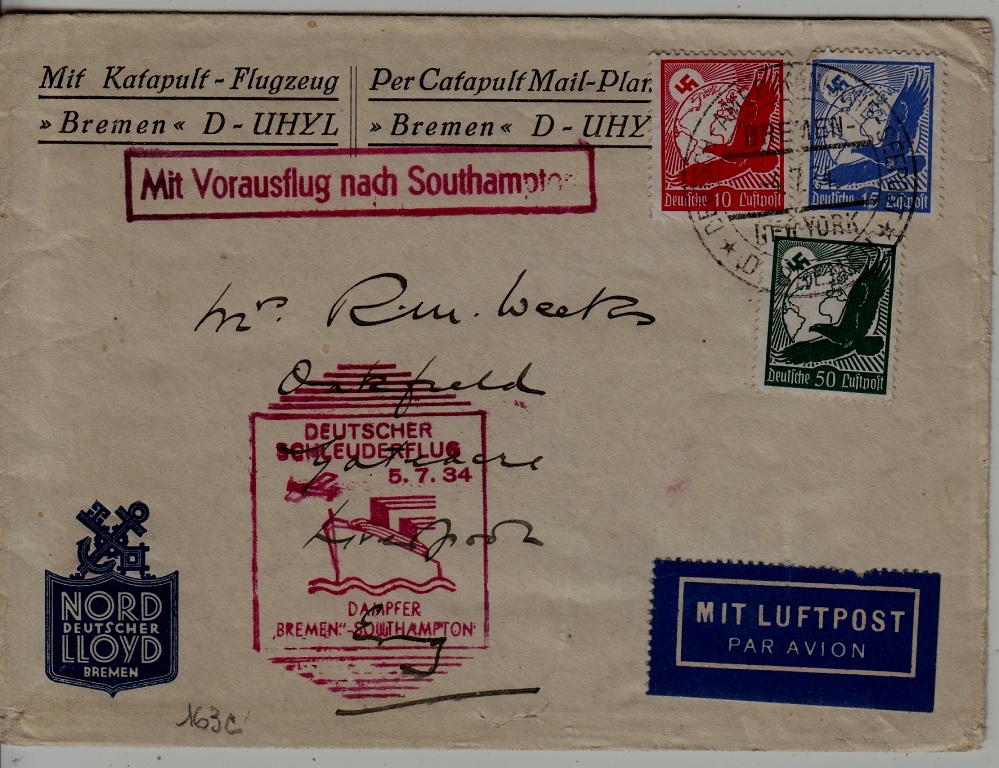 Mit Katapult-Flugzeug
»Bremen« D-UHYL
Per Catapult Mail-Plan
»Bremen« D-UHY
Mit Vorausflug nach Southampton
Deutsche 10 Luftpost
Deutsche 15 Luftpost
BREMEN-
7.
NEW YORK
Deutsche 50 Luftpost
Mr. R.M. Weeks
Oakfield
Gateacre
Liverpool
Eng
DEUTSCHER
SCHLEUDERFLUG
5.7.34
DAMPFER
"BREMEN"-SOUTHAMPTON
NORD
DEUTSCHER
LLOYD
BREMEN
MIT LUFTPOST
PAR AVION
163c